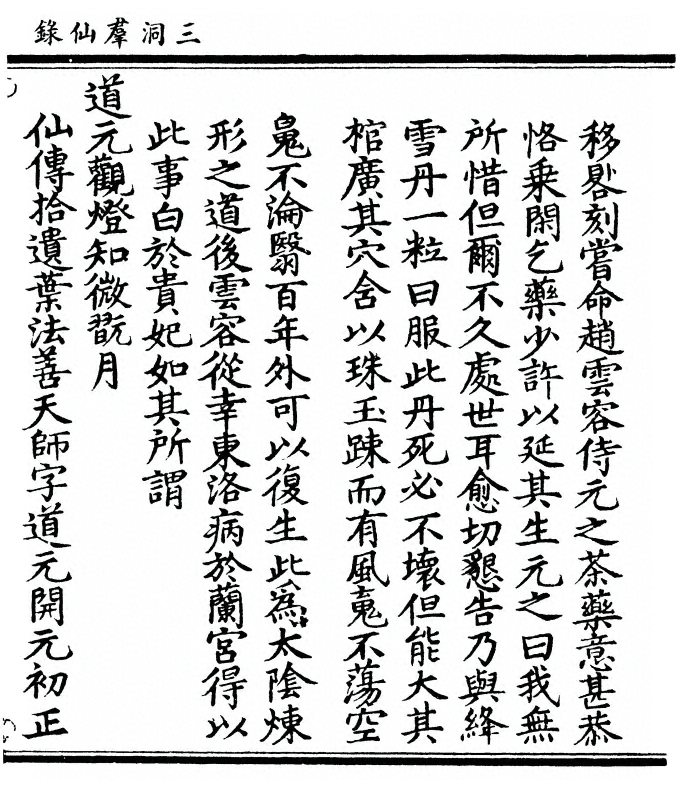 三洞羣仙錄
移晷刻嘗命趙雲容侍元之茶藥意甚恭
恪乗閑乞藥少許以延其生元之曰我無
所惜但爾不久處世耳愈切懇告乃與絳
雪丹一粒曰服此丹死必不壞但能大其
棺廣其穴含以珠玉踈而有風䰟不蕩空
鬼不淪翳百年外可以復生此為太陰煉
形之道後雲容從幸東洛病於蘭宮得以
此事白於貴妃如其所謂
道元觀燈知微翫月
仙傳拾遺葉法善天師字道元開元初正